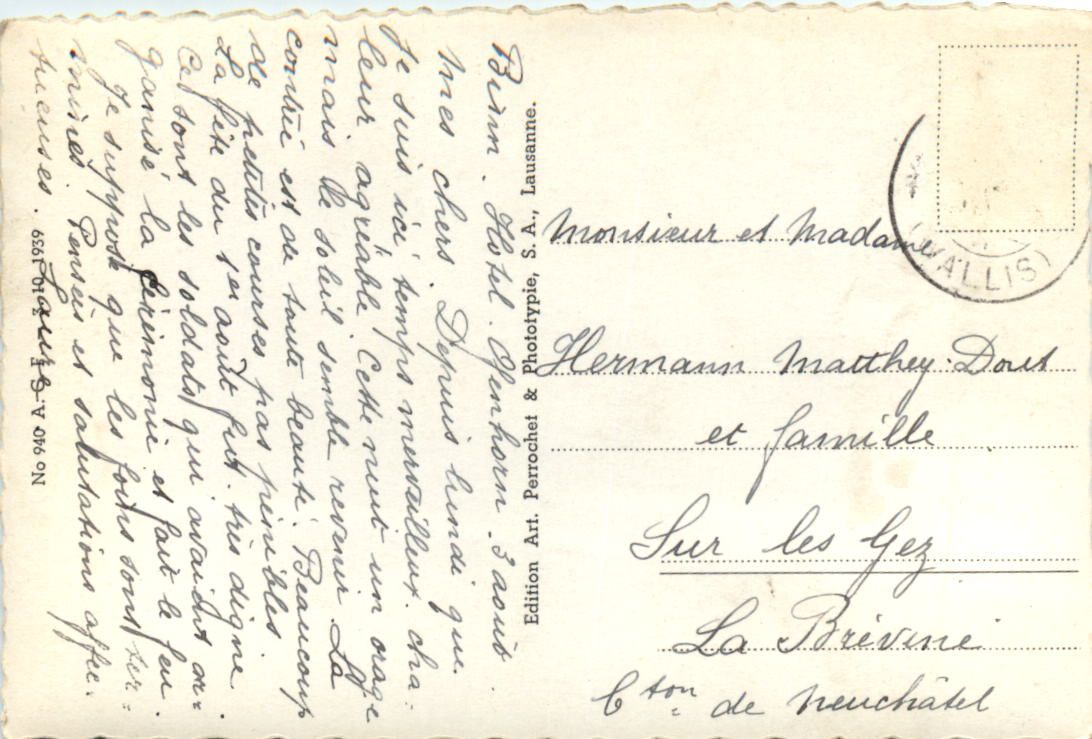 Binn. Hôtel Ofenhorn. 3 août
Mes chers. Depuis lundi que
je suis ici temps merveilleux. cha-
leur agréable. Cette nuit un orage
mais le soleil semble revenir. La
contrée est de toute beauté. Beaucoup
de petites courses pas pénibles.
La fête du 1er août fut très digne.
Ce sont les soldats qui avaient or-
ganisé la cérémonie et fait le feu.
Je suppose que les foins sont ter=
minés. Pensées et salutations affec=
tueuses.
No 940 A. S. F. 3.10.1939
Edition Art. Perrochet & Phototypie, S. A., Lausanne.
Monsieur et Madame
Hermann Matthey-Doret
et famille
Sur les Gez
La Brévine
Cton de Neuchâtel
(WALLIS)